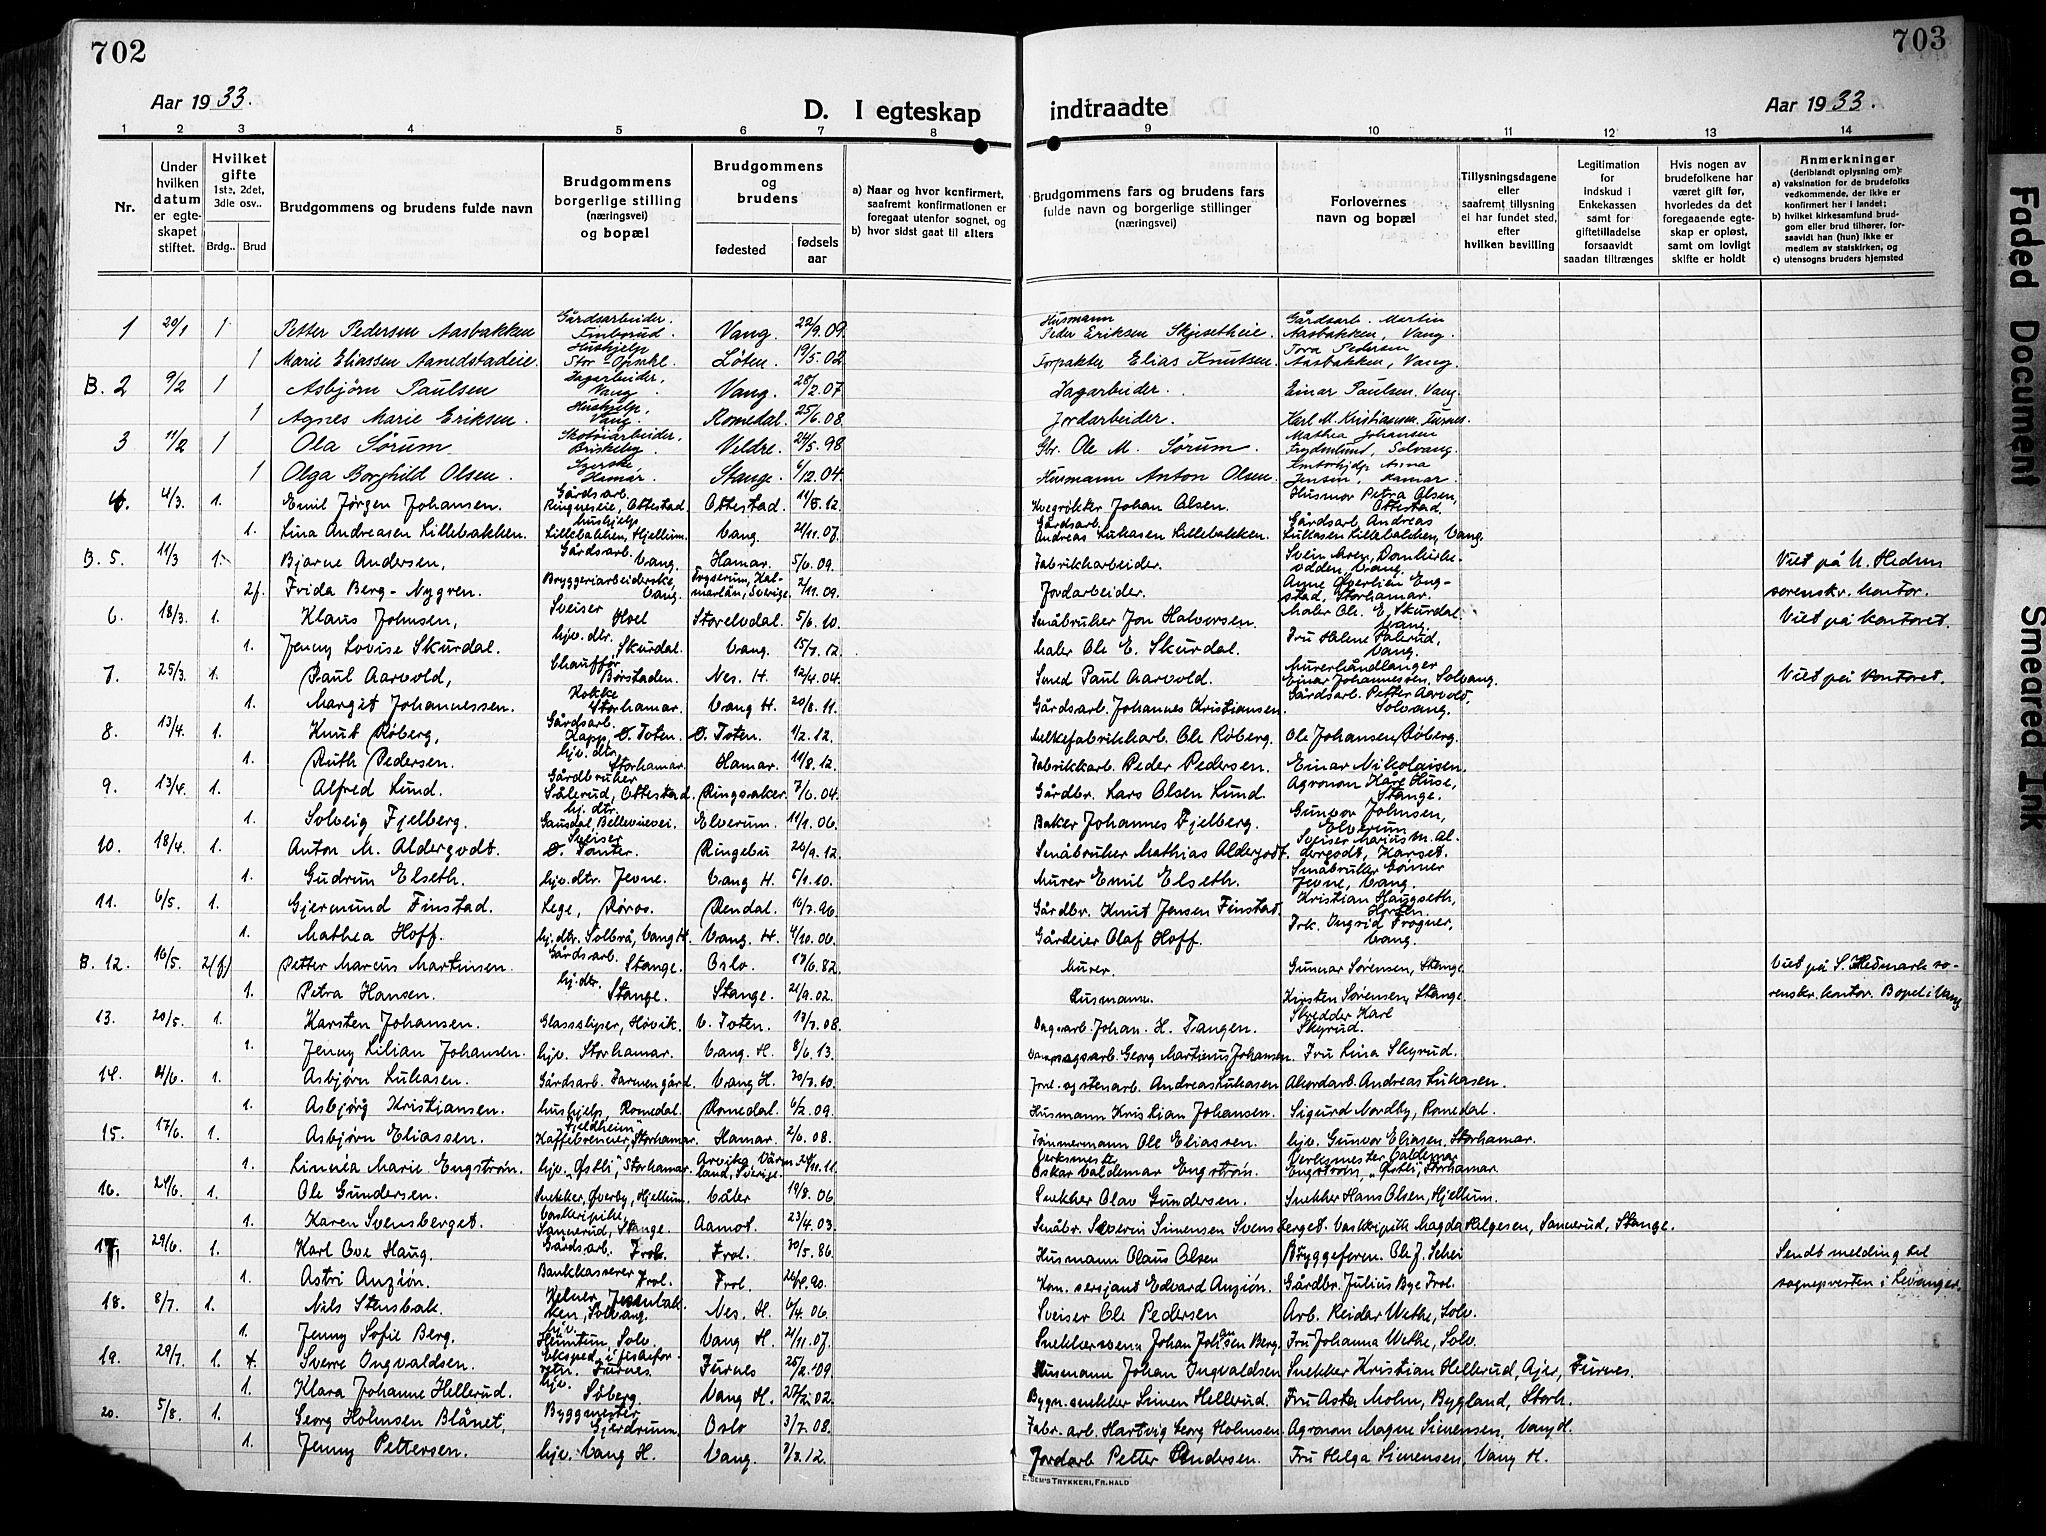 702
Aar 1933.
D. I egteskap
1 2 3 4 5 6 7 8
Nr.
Under hvilken datum er egteskapet stiftet.
Hvilket gifte 1ste, 2det, 3die osv..
Brdg.. Brud
Brudgommens og brudens fulde navn
Brudgommens borgerlige stilling (næringsvei) og bopæl
Brudgommens og brudens
fødested
fødsels aar
a) Naar og hvor konfirmert, saafremt konfirmationen er foregaat utenfor sognet, og
b) hvor sidst gaat til alters
1 20/1 1 Petter Pedersen Aasbakken Gårdsarbeider. Vang. 22/9.09.
1 Marie Eliassen Aanestadeie. Hushjelp Løten. 19/5.02
B. 2 9/2 1 Asbjørn Paulsen Dagarbeider, Vang Vang. 28/2.07
1 Agnes Marie Eriksen. Hushjelp, Vang. Romedal. 25/6.08
3 11/2 1 Ola Sørum Skotøiarbeider, Briskeby Veldre. 24/5.98
1 Olga Borghild Olsen. Hamar. Stange. 6/12.04
4. 4/3. 1. Emil Jørgen Johansen. Gårdsarb. Ringneseie, Ottestad Ottestad. 11/5.12.
1. Lina Andreasen Lillebakken. hushjelp Lillebakken, Hjellum. Vang. 21/11.07.
B. 5. 11/3 1. Bjarne Andersen, Gårdsarb. Vang. Hamar. 5/6.09.
2f. Frida Berg-Nygren. Bryggeriarbeiderske, Vang. Sverige. 2/11.09.
6. 18/3. 1. Klaus Johnsen, Sveiser Hoel Storelvdal. 5/6.10.
1. Jenny Lovise Skurdal. hjv. dtr. Skurdal. Vang. 15/7.12.
7. 25/3. 1. Paul Aarvold, Chauffør Børstaden. Nes. H. 12/4.04.
1. Margit Johannessen. Kokke Storhamar. Vang H. 20/6.11.
8. 13/4. 1. Knut Røberg, Gårdsarb. Kapp, Ø. Toten. Ø. Toten. 1/2.12.
1. Ruth Pedersen. hjv. dtr. Storhamar. Hamar. 11/8.12.
9. 13/4. 1. Alfred Lund. Gårdbruker Sålerud, Ottestad. Ringsaker. 7/6.04.
1. Solveig Fjelberg. hj. dtr. Gausdal, Bellevuevei. Elverum. 11/1.06.
10. 18/4. 1. Anton M. Aldergodt. Sveiser Ø. Tomter. Ringebu 26/9.12.
1. Gudrun Elseth. hjv. dtr. Jevne. Vang H. 5/1.10.
11. 6/5. 1. Gjermund Finstad. Lege, Røros. Rendal. 16/7.96
1. Mathea Hoff. hj. dtr. Solbrå, Vang H. Vang. H. 4/10.06.
B. 12. 16/5. 2(f) Petter Marcus Martinsen. Gårdsarb. Stange. Oslo. 17/6.82.
1. Petra Hansen. hj. dtr. Stange. Stange. 21/9.02.
13. 20/5. 1. Karsten Johansen. Glassliper, Høvik. V. Toten. 17/7.08.
1. Jenny Lilian Johansen. hjv. Storhamar. Vang. H. 8/6.13.
14. 4/6. 1. Asbjørn Lukasen. Gårdsarb. Farmen gård. Vang H. 20/7.10.
1. Asbjørg Kristiansen. hushjelp, Romedal. Romedal. 6/2.09.
15. 17/6. 1. Asbjørn Eliassen. "Fjeldheim" Kaffebrenner, Storhamar. Hamar. 2/6.08.
1. Linnéa Marie Engstrøn. hjv. "Østli", Storhamar. Arvika Värmland, Sverige. 24/11.11.
16. 24/6. 1. Ole Gundersen. Snekker, Øverby, Hjellum. Våler 19/8.06
1. Karen Svensberget. Vaskeripike, Sannerud, Stange. Aamot. 23/4.03.
17. 29/6. 1. Karl Ove Haug. Gårdsarb. Frol. Frol. 30/5.86.
1. Astri Anziøn. Bankkasserer Frol. Frol. 90.
18. 8/7. 1. Nils Stensbak. Solvang. Nes. H. 6/4.06.
1. Jenny Sofie Berg. hjv. Heimtun, Solv. Vang H. 21/11.07.
19. 29/7. 1. Sverre Ingvaldsen. Eksped. i fiskeforretn. Furnes. Furnes 25/2.09
1. Klara Johanne Hellerud. hjv. Solberg. Vang H. 02.
20. 5/8. 1. Georg Holmsen Blånet, Byggmester Gjerdrum. Oslo 3/7.08.
1. Jenny Pettersen. hjv. Vang H. Vang. 12.
703
indtraadte
Aar 1933.
9 10 11 12 13 14
Brudgommens fars og brudens fars fulde navn og borgerlige stillinger (næringsvei)
Forlovernes navn og bopæl
Tillysningsdagene eller saafremt tillysning ei har fundet sted, efter hvilken bevilling
Legitimation for indskud i Enkekassen samt for giftetilladelse forsaavidt saadan tiltrænges
Hvis nogen av brudefolkene har været gift før, hvorledes da det foregaaende egteskap er opløst, samt om lovligt skifte er holdt
Anmerkninger (deriblandt oplysning om):
a) vaksination for de brudefolks vedkommende, der ikke er konfirmert her i landet;
b) hvilket kirkesamfund brudgom eller brud tilhører, forsaavidt han (hun) ikke er medlem av statskirken, og
c) utensogns bruders hjemsted
Husmann Peder Eriksen Skjesetheie. Gårdsarb. Martin Aasbakken, Vang.
Forpakter Elias Knutsen. Tora Pedersen Aasbakken, Vang.
Dagarbeider. Einar Paulsen. Vang.
Jordarbeider. Karl M. Kristiansen. Furnes.
Gbr. Ole M. Sørum. Mathea Johansen Frydenlund, Solvang.
Husmann Anton Olsen. Anna Jensen, Hamar.
Kvegrøkter Johan Olsen. Husmor Petra Olsen, Ottestad.
Gårdsarb. Andreas Lukasen Lillebakken. Gårdsarb. Andreas Lukasen Lillebakken, Vang.
Fabrikkarbeider. Svein Vang. Viet på N. Hedm.
Jordarbeider. Storhamar. sorenskr. kontor.
Småbruker Jon Halvorsen. Maler Ole E. Skurdal Vang. Viet på kontoret.
Maler Ole E. Skurdal. Fru Helene Vang.
Smed Paul Aarvold. Murerhåndlanger Einar Johannessen, Solvang. Viet på kontoret.
Gårdsarb. Johannes Kristiansen. Gårdsarb. Petter Aarvold, Solvang.
Melkefabrikkarb. Ole Røberg. Ole Johansen Røberg.
Fabrikkarb. Peder Pedersen. Einar Nikolaisen.
Gårdbr. Lars Olsen Lund. Agronom Kåre Huse, Stange.
Baker Johannes Fjelberg. Gunvor Johnsen, Elverum
Småbruker Mathias Aldergodt. Sveiser Marius M. Aldergodt,
Murer Emil Elseth. Småbruker Jevne, Vang.
Gårdbr. Knut Jensen Finstad. Kristian Haugseth, Horten.
Gårdeier Olaf Hoff. Frk. Ingrid Frogner, Vang.
Murer. Gunnar Sørensen, Stange Viet på S. Hedmark so-
Husmann. Kirsten Sørensen, Stange renskr. kontor. Bopel i Vang
Dagarb. Johan. H. Tangen. Skredder Karl Skyrud.
Georg Martinius Johansen. Fru Lina Skyrud.
Jord.- og stenarb. Andreas Lukasen Akordarb. Andreas Lukasen.
Husmann Kristian Johansen. Sigurd Nordby, Romedal.
Tømmermann Ole Eliassen. hjv. Gunvor Eliasen, Storhamar.
Verksmester Oskar Valdemar Engstrøn. Verksmester Valdemar Engstrøn, "Østli", Storhamar.
Snekker Olav Gundersen. Snekker Hans Olsen, Hjellum.
Småbr. Severin Simensen Svensberget. Vaskeripike Magda Helgesen, Sannerud, Stange.
Husmann Olaus Olsen Bryggeform. Ole J. Schei Sendt melding til
Kom. sersjant Edvard Anziøn. Gårdbr. Julius Bye Frol. sognepresten i Levanger.
Sveiser Ole Pedersen Arb. Reidar Wethe, Solv.
Johan Johansen Berg. Fru Johanna Wethe, Solv.
Husmann Johan Ingvaldsen Snekker Kristian Hellerud, Ajer, Furnes.
Bygn. snekker Simen Hellerud. Fru Asta Molin, Bygland, Storh.
Fabr. arb. Hartvig Georg Holmsen. Agronom Magne Simensen, Vang H.
Jordarb Petter Andersen. Fru Helga Simensen, Vang H.
E. SEM'S TRYKKERI, FR.HALD
Faded Document
Smeared Ink